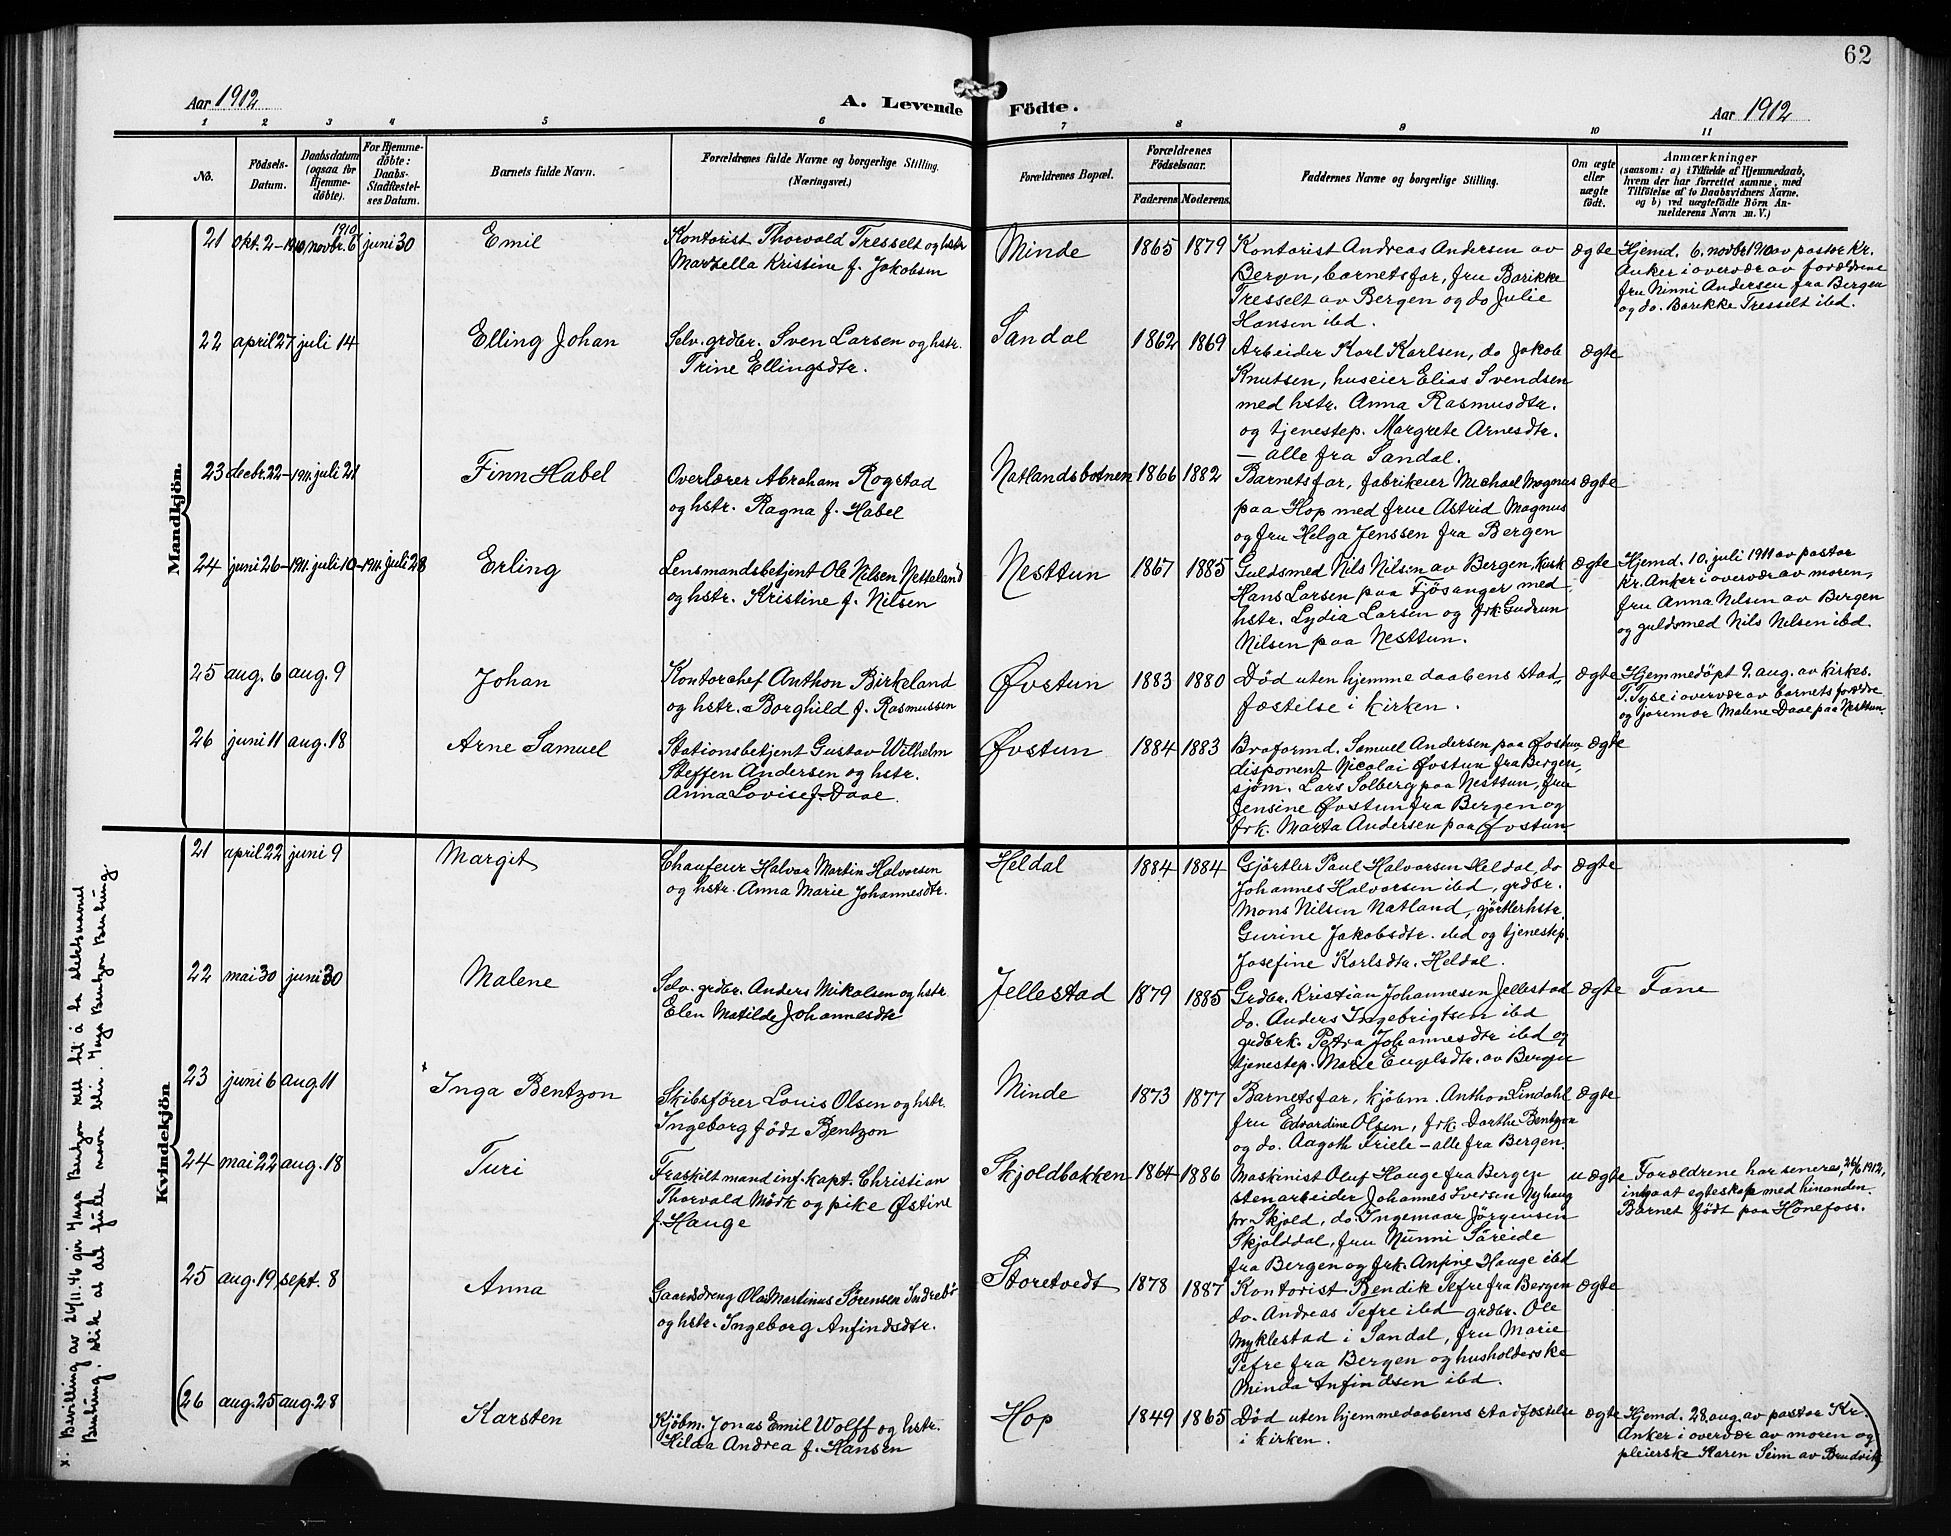 62
Aar 1912
A. Levende Födte.
Aar 1912
1 2 3 4 5 6 7 8 9 10 11
No.
Födsels-
Datum.
Daabsdatum
(ogsaa for
Hjemme-
döbte).
For Hjemme-
döbte:
Daabs-
Stadfæstel-
ses Datum.
Barnets fulde Navn.
Forældrenes fulde Navne og borgerlige Stilling.
(Næringsvei.)
Forældrenes Bopæl.
Forældrenes
Födselsaar.
Faderens
Moderens
Faddernes Navne og borgerlige Stilling.
Om ægte
eller
uægte
født.
Anmærkninger
(saasom: a) i Tilfælde af Hjemmedaab,
hvem der har forrettet samme, med
Tilföielse af to Daabsvidners Navne,
og b) ved uægtefödte Börn An-
melderens Navn m. V.)
Mandkjön.
21 okt. 2-1910 1910 novbr. 6 juni 30
Emil
Kontorist Thorvald Tresselt og hstr
Marsella Kristine f. Jakobsen
Minde
1865 1879
Kontorist Andreas Andersen av
Bergen, barnets far, fru Barikke
Tresselt av Bergen og do Julie
Hansen ibd.
ægte
Hjemd. 6. novbr 1910 av pastor Kr.
Anker i overvær av forældrene
fru Ninni Andersen fra Bergen
og do. Barikke Tresselt ibd.
22 april 27 juli 14
Elling Johan
Selv. grdbr. Sven Larsen og hstr.
Trine Ellingsdtr.
Sandal
1862 1869
Arbeider Karl Karlsen, do Jakob
Knutsen, huseier Elias Svendsen
med hstr. Anna Rasmusdtr.
og tjenestep. Margrete Arnesdtr.
— alle fra Sandal.
ægte
23 decbr. 22-1911 juli 21
Finn Habel
Overlærer Abraham Rogstad
og hstr. Ragna f. Habel
Natlandsbotnen
1866 1882
Barnets far, fabrikeier Michael Magnus
paa Hop med frue Astrid Magnus
og fru Helga Jenssen fra Bergen
ægte
24 juni 26-1911 juli 10-1911 juli 28
Erling
Lensmandsbetjent Ole Nilsen Nesteland
og hstr. Kristine f. Nilsen
Nesttun
1867 1885
Guldsmed Nils Nilsen av Bergen, kusk
Hans Larsen paa Fjösanger med
hstr. Lydia Larsen og frk. Gudrun
Nilsen paa Nesttun.
ægte
Hjemd. 10. juli 1911 av pastor
Kr. Anker i overvær av moren,
fru Anna Nilsen av Bergen
og guldsmed Nils Nilsen ibd.
25 aug. 6 aug. 9
Johan
Kontorchef Anthon Birkeland
og hstr. Borghild f. Rasmussen
Øvstun
1883 1880
Död uten hjemmedaabens stad„
fæstelse i kirken.
ægte
Hjemmedöpt 9. aug. av kirkes.
T. Tyse i overvær av barnets forældre
og jordemor Malene Daae paa Nesttun.
26 juni 11 aug. 18
Arne Samuel
Stationsbetjent Gustav Wilhelm
Steffen Andersen og hstr.
Anna Lovise f. Daae.
Øvstun
1884 1883
Braformd. Samuel Andersen paa Øvstun
disponent Nicolai Øvstun fra Bergen,
sjöm. Lars Solberg paa Nesttun, fru
Jensine Øvstun fra Bergen og
frk. Marta Andersen paa Øvstun
ægte
Kvindekjön
21 april 22 juni 9
Margit
Chaufeur Halvar Martin Halvorsen
og hstr. Anna Marie Johannesdtr.
Heldal
1884 1884
Gjörtler Paul Halvorsen Heldal, do
Johannes Halvorsen ibd, grdbr.
Mons Nilsen Natland, gjörtlerhstr.
Gurine Jakobsdtr. ibd og tjenestep.
Josefine Karlsdtr. Heldal.
ægte
22 mai 30 juni 30
Malene
Selv. grdbr. Anders Mikalsen og hstr
Elen Matilde Johannesdtr
Jellestad
1879 1885
Grdbr. Kristian Johannesen Jellestad
do. Anders Ingebrigtsen ibd
grdbrk. Petra Johannesdtr ibd og
tjenestep. Marie Engelsdtr. av Bergen
ægte
Fane
23 juni 6 aug. 11
x Inga Bentzon
Skibsförer Louis Olsen og hstr.
Ingeborg födt Bentzon
Minde
1873 1877
Barnets far, kjöbm. Anthon Lindahl
fru Edvardine Olsen, frk. Dorthe Bentzon
og do. Aagoth Friele — alle fra Bergen.
ægte
24 mai 22 aug. 18
Turi
Fraskilt mand inf. kapt. Christian
Thorvald Mörk og pike Østine
f. Hauge
Skjoldbakken
1864 1886
Maskinist Oluf Hauge fra Bergen
stenarbeider Johannes Iversen Nyhaug
pr. Skjold, do. Ingemaar Jörgensen
Skjolddal, fru Nunni Söreide
fra Bergen og frk. Anfine Hauge ibd
uægte
Forældrene har senere, 26/6 1912,
indgaat egteskap med hinanden.
Barnet födt paa Hönefoss.
25 aug. 19 sept. 8
Anna
Gaardsdreng Ola Martinus Sörensen Indrebö
og hstr. Ingeborg Anfindsdtr.
Storetvedt
1878 1887
Kontorist Bendik Tefre fra Bergen
do. Andreas Tefre ibd grdbr. Ole
Myklestad i Sandal, fru Marie
Tefre fra Bergen og husholderske
Minda Anfindsen ibd.
ægte
(26 aug. 25 aug. 28
Karsten
Kjöbm. Jonas Emil Wolff og hstr.
Hilda Andrea f. Hansen
Hop
1849 1865
Död uten hjemmedaabens stadfæstelse
i kirken.
ægte
Hjemd. 28. aug. av pastor Kr.
Anker i overvær av moren og
pleierske Karen Seim av Bruvik)
x: Bevilling av 26/11. 46 gir Inga Bentzon rett til å ta slektsnavnet
Benting, slik at det fulle navn blir: Inga Bentzon Benting.